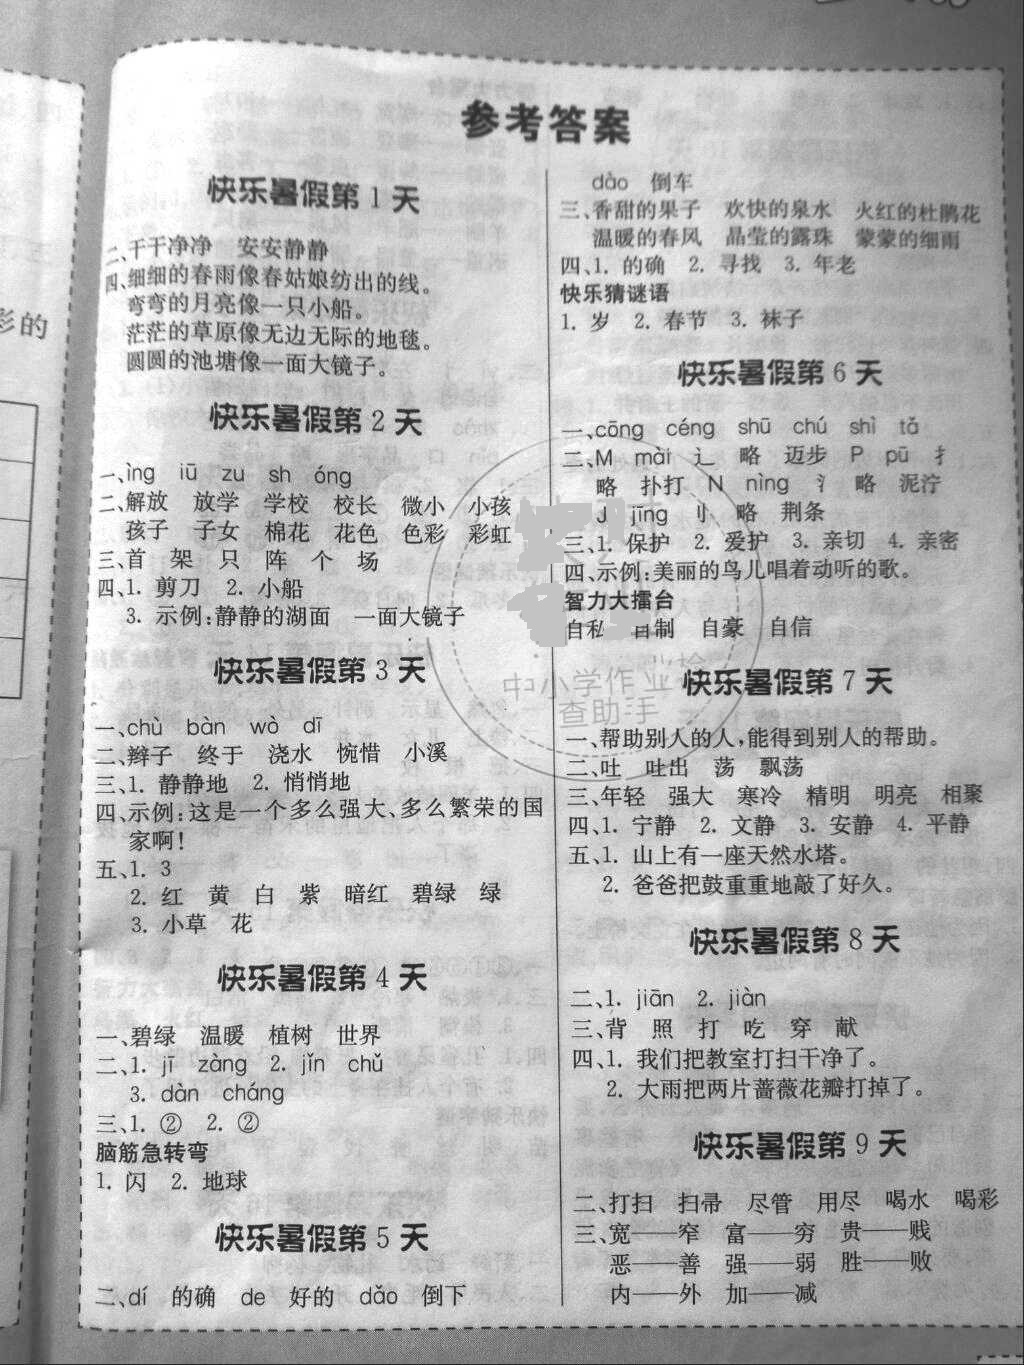 参考答案
快乐暑假第1天
二、干干净净 安安静静
四、细细的春雨像春姑娘纺出的线。
弯弯的月亮像一只小船。
茫茫的草原像无边无际的地毯。
圆圆的池塘像一面大镜子。
快乐暑假第2天
一、ìng iū zu sh óng
二、解放 放学 学校 校长 微小 小孩
孩子 子女 棉花 花色 色彩 彩虹
三、首 架 只 阵 个 场
四、1. 剪刀 2. 小船
3. 示例:静静的湖面 一面大镜子
快乐暑假第3天
一、chù bàn wò dī
二、辫子 终于 浇水 惋惜 小溪
三、1. 静静地 2. 悄悄地
四、示例:这是一个多么强大、多么繁荣的国
家啊!
五、1. 3
2. 红 黄 白 紫 暗红 碧绿 绿
3. 小草 花
快乐暑假第4天
一、碧绿 温暖 植树 世界
二、1. jī zàng 2. jǐn chǔ
3. dàn cháng
三、1. ② 2. ②
脑筋急转弯
1. 闪 2. 地球
快乐暑假第5天
二、dí 的确 de 好的 dǎo 倒下
dào 倒车
三、香甜的果子 欢快的泉水 火红的杜鹃花
温暖的春风 晶莹的露珠 蒙蒙的细雨
四、1. 的确 2. 寻找 3. 年老
快乐猜谜语
1. 岁 2. 春节 3. 袜子
快乐暑假第6天
一、cōng céng shū chú shì tǎ
二、M mài 辶 略 迈步 P pū 扌
略 扑打 N nìng 氵 略 泥泞
J jīng 刂 略 荆条
三、1. 保护 2. 爱护 3. 亲切 4. 亲密
四、示例:美丽的鸟儿唱着动听的歌。
智力大擂台
自私 自制 自豪 自信
快乐暑假第7天
一、帮助别人的人,能得到别人的帮助。
二、吐 吐出 荡 飘荡
三、年轻 强大 寒冷 精明 明亮 相聚
四、1. 宁静 2. 文静 3. 安静 4. 平静
五、1. 山上有一座天然水塔。
2. 爸爸把鼓重重地敲了好久。
快乐暑假第8天
二、1. jiān 2. jiàn
三、背 照 打 吃 穿 献
四、1. 我们把教室打扫干净了。
2. 大雨把两片蔷薇花瓣打掉了。
快乐暑假第9天
二、打扫 扫帚 尽管 用尽 喝水 喝彩
三、宽——窄 富——穷 贵——贱
恶——善 强——弱 胜——败
内——外 加——减
中小学作业检
查助手
彩的